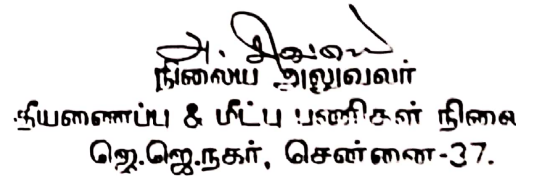 நிலைய அலுவலர்
தீயணைப்பு & மீட்பு பணிகள் நிலை
ஜெ.ஜெ.நகர், சென்னை-37.